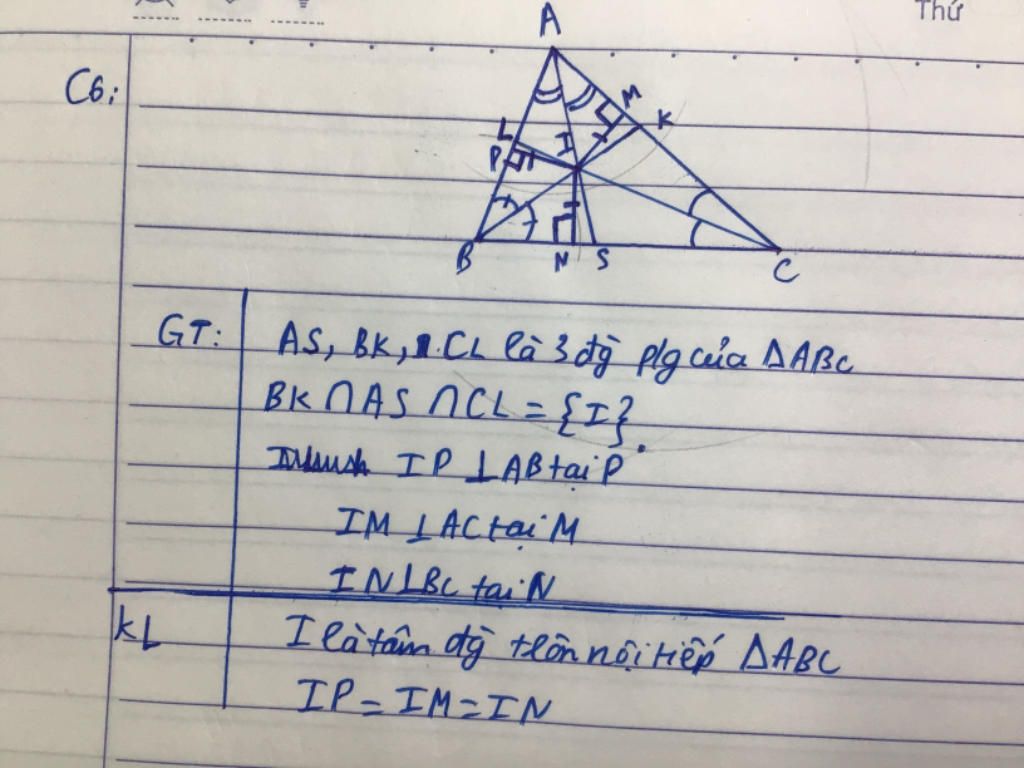 Thứ
C6:
A
M
K
L
I
P
B
N S
C
GT: AS, BK, CL là 3 đg plg của ΔABC
BK ∩ AS ∩ CL = {I}.
IP ⊥ AB tại P
IM ⊥ AC tại M
IN ⊥ BC tại N
KL I là tâm đg tròn nội tiếp ΔABC
IP = IM = IN